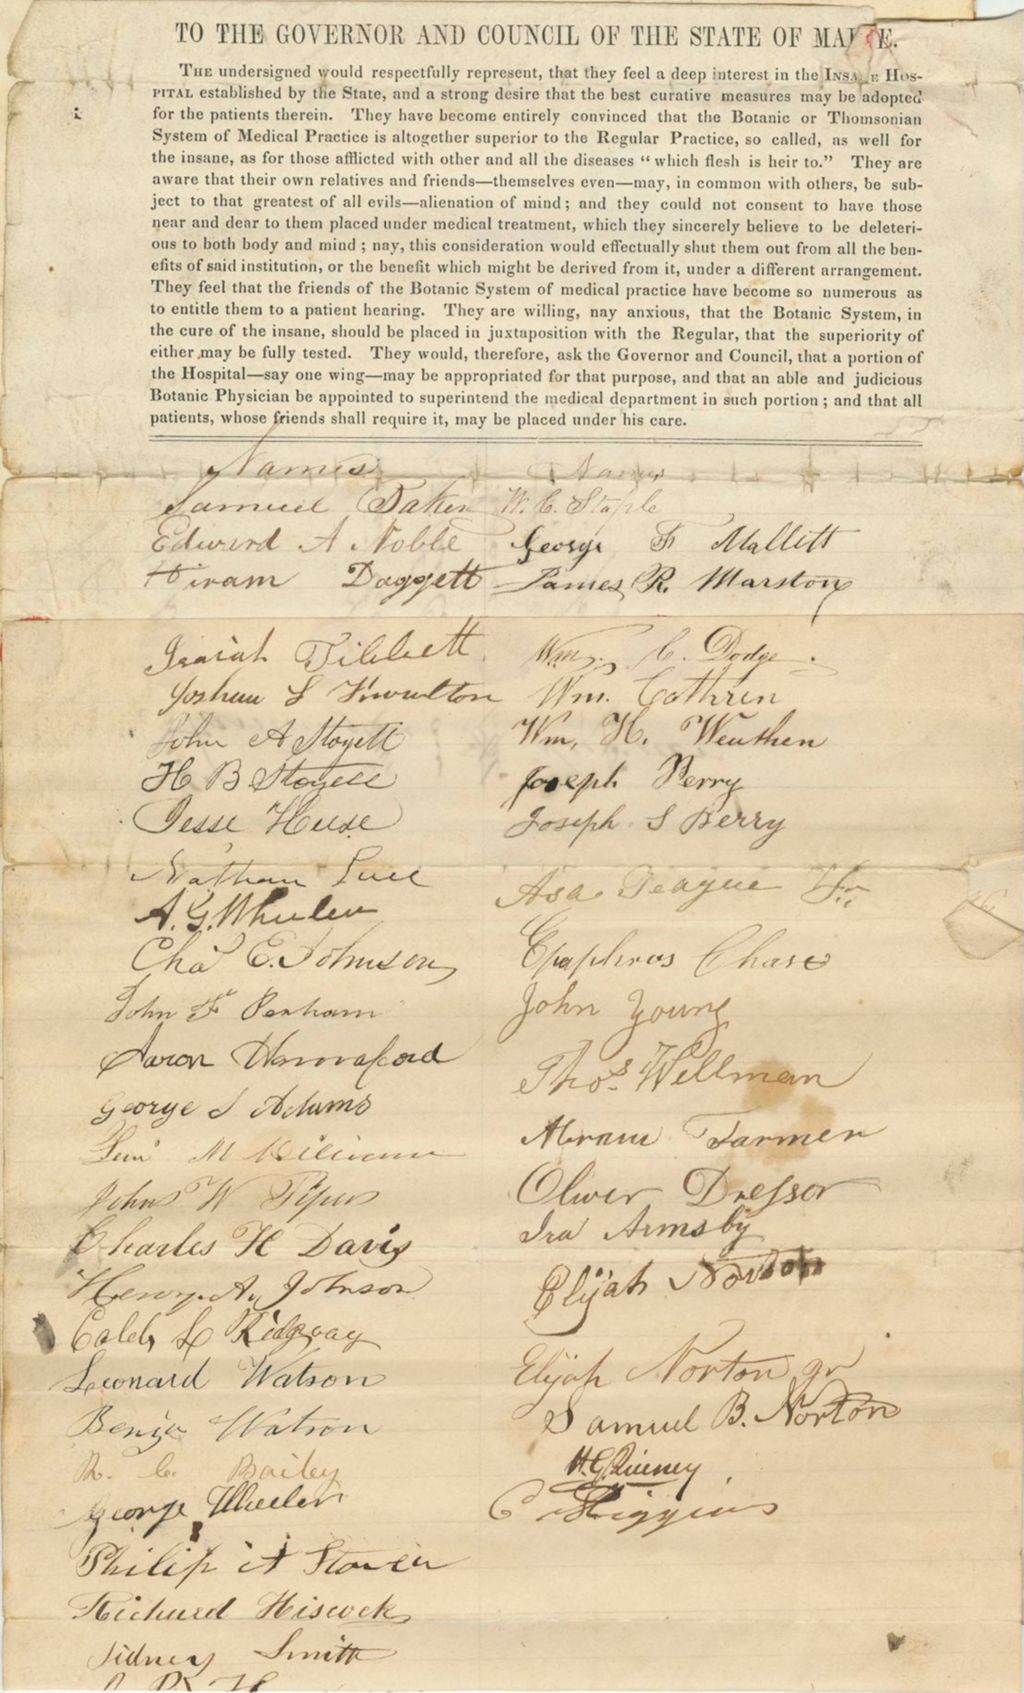 TO THE GOVERNOR AND COUNCIL OF THE STATE OF MAINE.
THE undersigned would respectfully represent, that they feel a deep interest in the INSANE HOS-
PITAL established by the State, and a strong desire that the best curative measures may be adopted
for the patients therein. They have become entirely convinced that the Botanic or Thomsonian
System of Medical Practice is altogether superior to the Regular Practice, so called, as well for
the insane, as for those afflicted with other and all the diseases “which flesh is heir to.” They are
aware that their own relatives and friends—themselves even—may, in common with others, be sub-
ject to that greatest of all evils—alienation of mind; and they could not consent to have those
near and dear to them placed under medical treatment, which they sincerely believe to be deleteri-
ous to both body and mind; nay, this consideration would effectually shut them out from all the ben-
efits of said institution, or the benefit which might be derived from it, under a different arrangement.
They feel that the friends of the Botanic System of medical practice have become so numerous as
to entitle them to a patient hearing. They are willing, nay anxious, that the Botanic System, in
the cure of the insane, should be placed in juxtaposition with the Regular, that the superiority of
either may be fully tested. They would, therefore, ask the Governor and Council, that a portion of
the Hospital—say one wing—may be appropriated for that purpose, and that an able and judicious
Botanic Physician be appointed to superintend the medical department in such portion; and that all
patients, whose friends shall require it, may be placed under his care.
Names
Samuel
Edward A Noble
Hiram Daggett
Isaiah Tibbett
Joshua S Knowlton
John A Stoyell
H B Stoyell
Jesse
Nathan Luce
A. G. Wheeler
Cha^s E. Johnson
John F Perham
Aaron Hannaford
George S Adams
M
John W
Charles H Davis
Henry A. Johnson
Caleb L Ridgway
Leonard Watson
Benja Watson
R. C. Bailey
George Wheeler
Philip A
Richard Hiscock
Sidney Smith
Names
W. C. Staple
George F Mallitt
James R. Marston
Wm. C. Dodge
Wm. Cothren
Wm. H.
Joseph Perry
Joseph S Berry
Asa Teague Jr.
Epaphras Chase
John Young
Thos. Wellman
Abram Farmer
Oliver Dressor
Ira Armsby
Elijah Norton
Elijah Norton Jr
Samuel B. Norton
H. G.
C Higgins